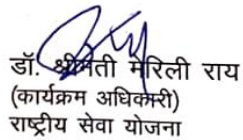 डॉ. श्रीमती मेरिली राय
(कार्यक्रम अधिकारी)
राष्ट्रीय सेवा योजना